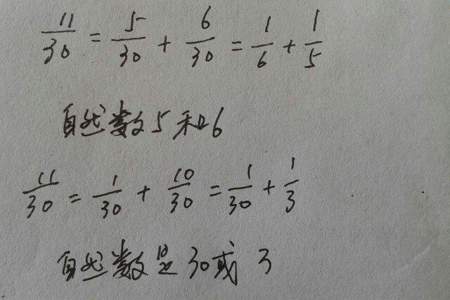 11/30 = 5/30 + 6/30 = 1/6 + 1/5
自然数5和6
11/30 = 1/30 + 10/30 = 1/30 + 1/3
自然数是30或3